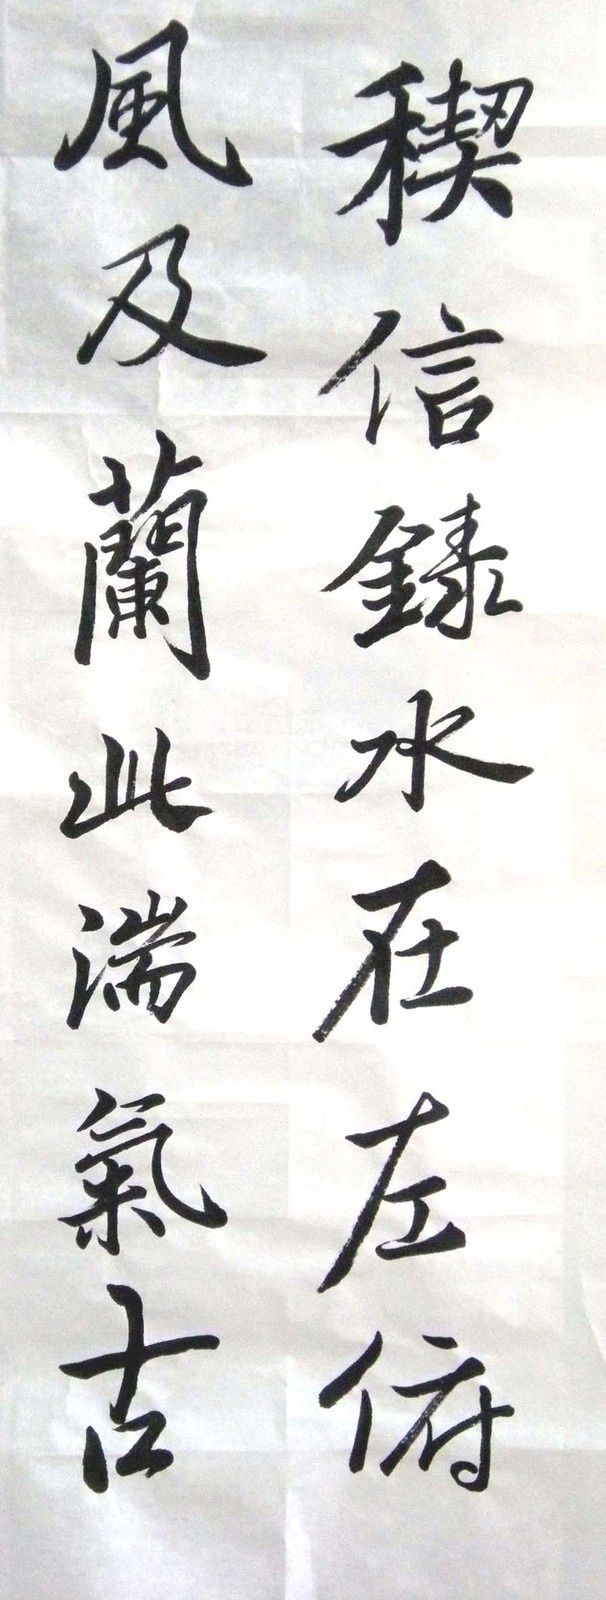 稧信錄水在左俯
風及蘭此湍氣古